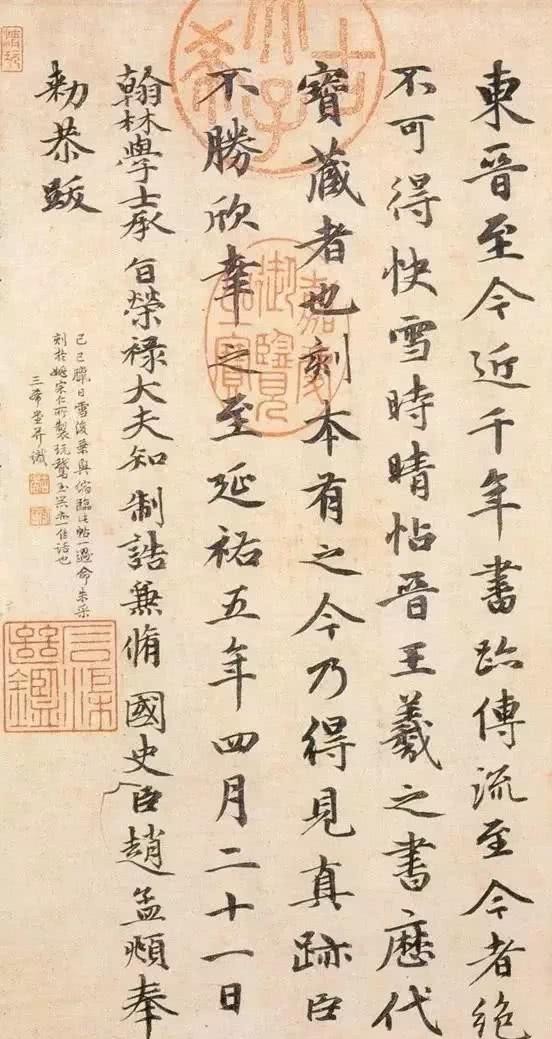 東晉至今近千年書跡傳流至今者絕
不可得快雪時晴帖晉王羲之書歷代
寶藏者也刻本有之今乃得見真跡臣
不勝欣幸之至延祐五年四月二十一日
翰林學士承旨榮祿大夫知制誥兼脩國史臣趙孟頫奉
勑恭跋
己巳臘日雪後乘興偶臨此帖一過命朱采
刻於姚宗仁所製玩鵞玉亦一佳話也
三希堂并識
古希天子
嘉慶御覽之寶